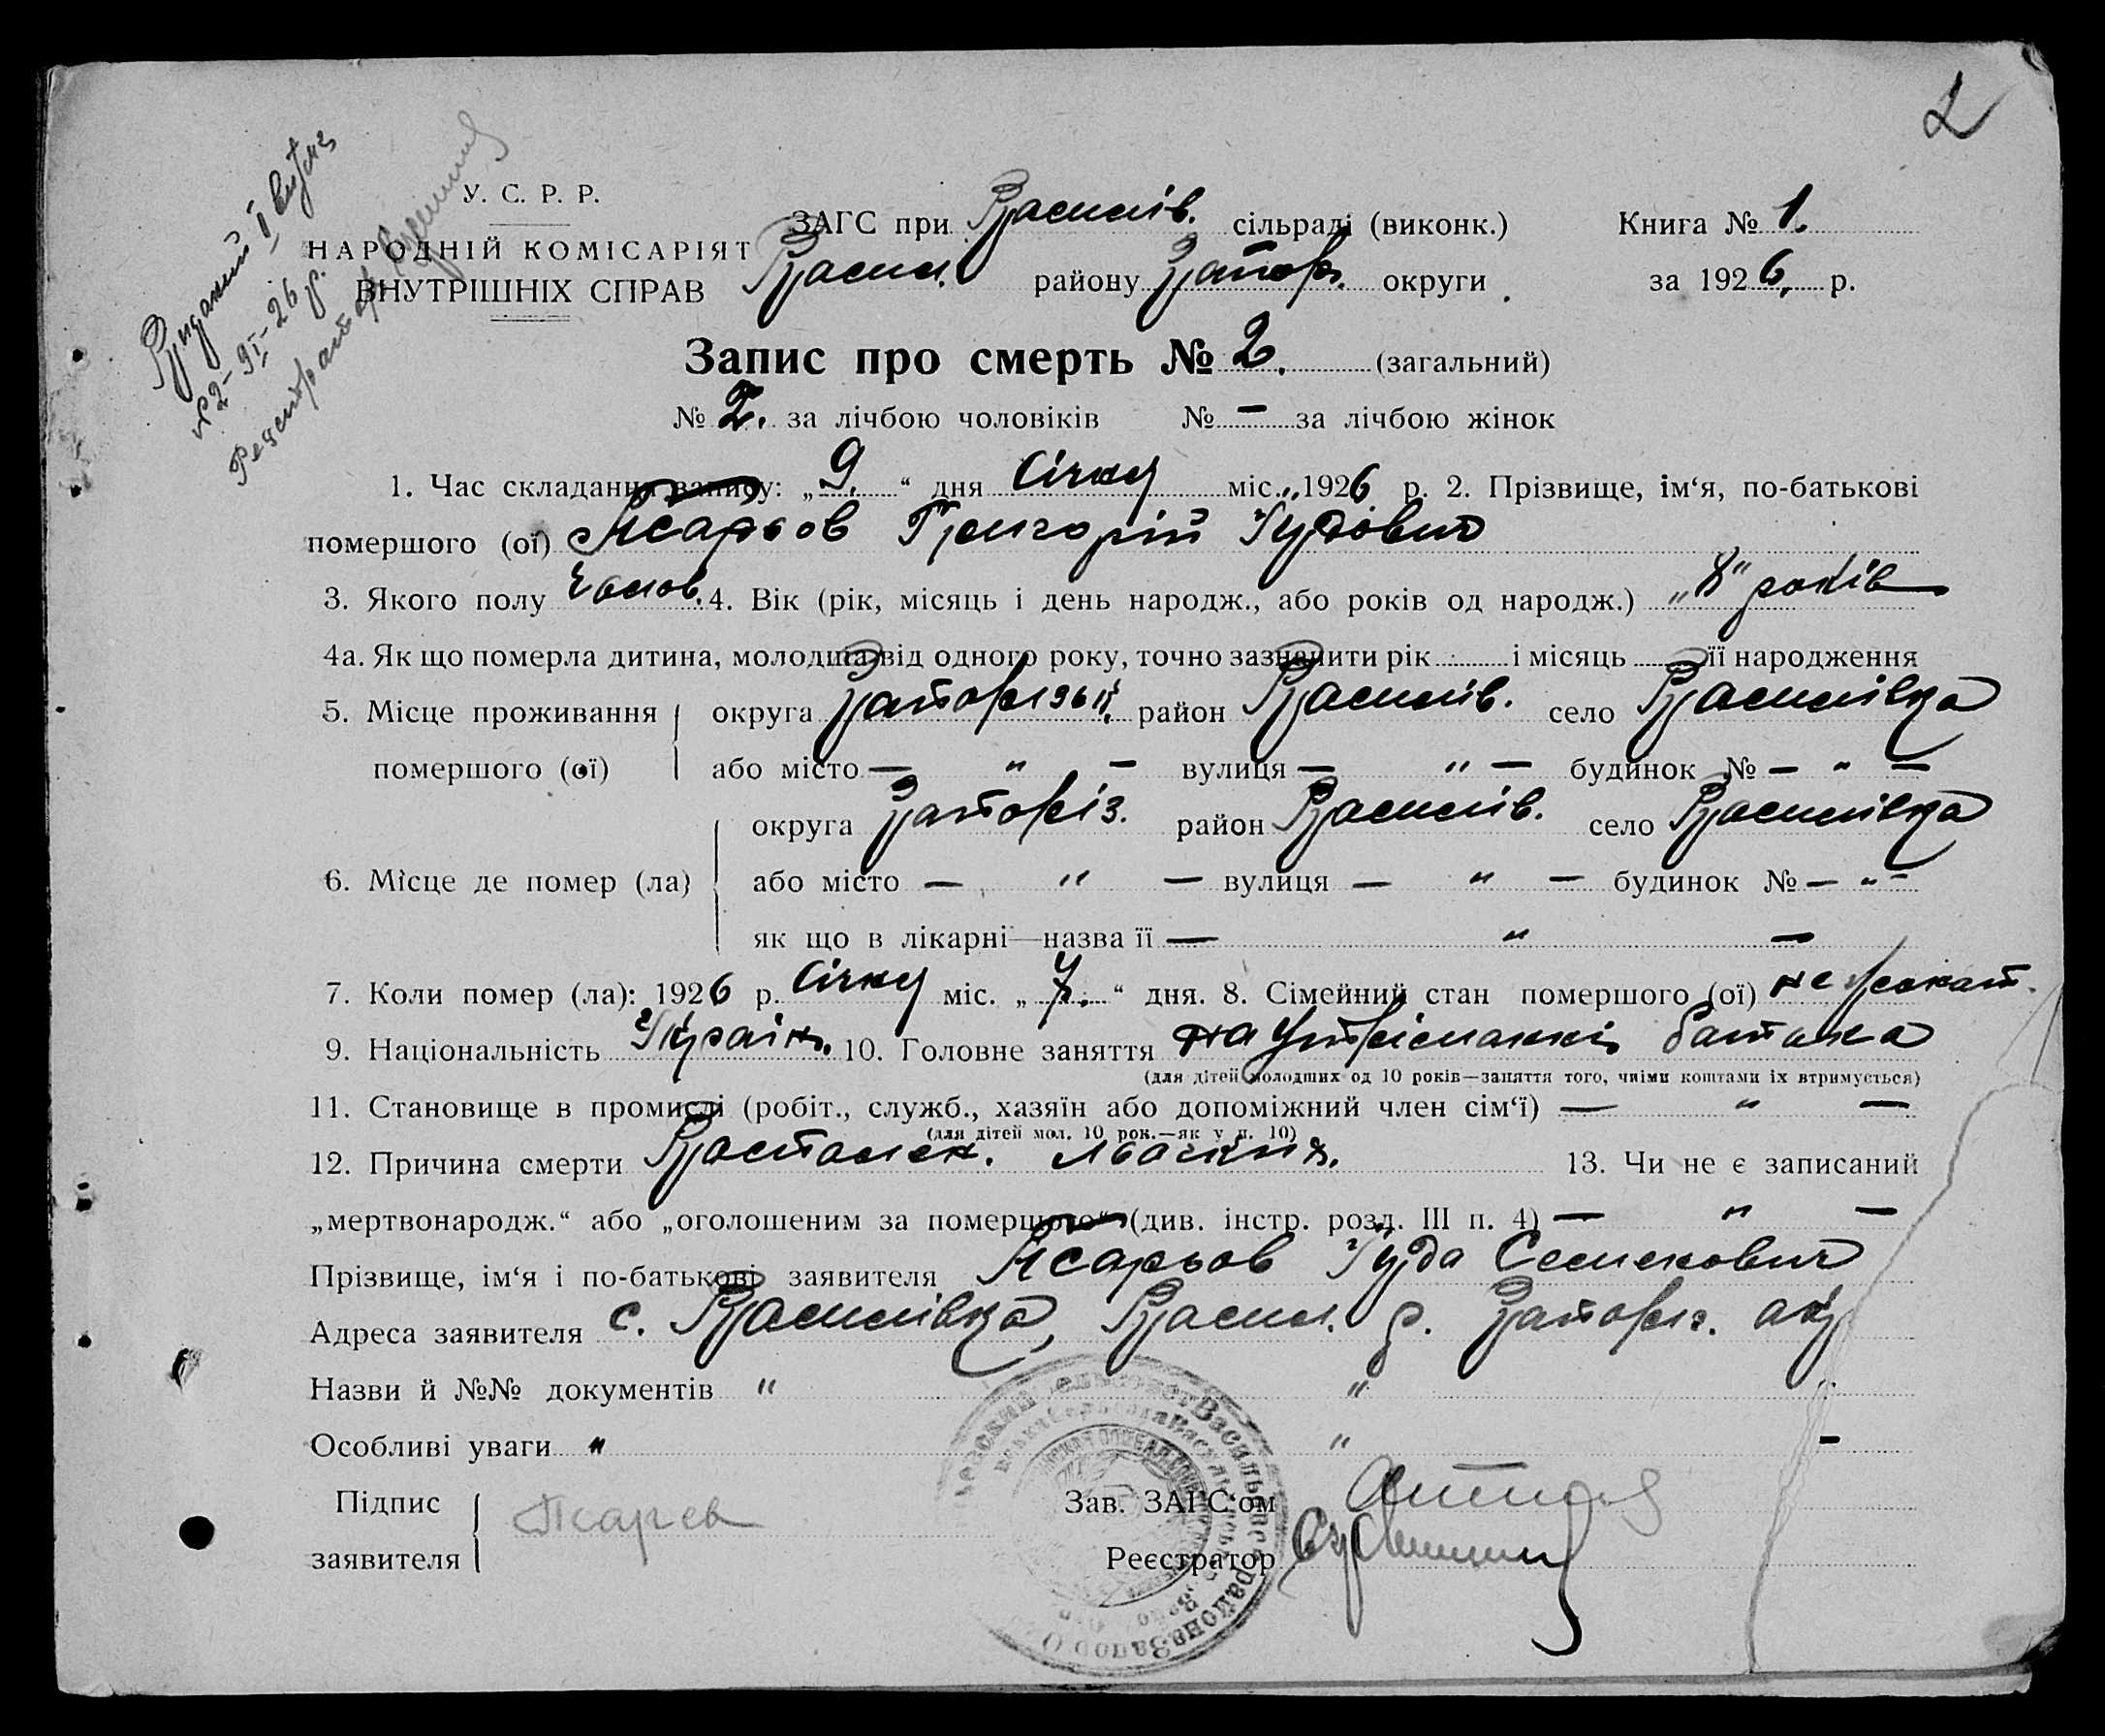 2
Виданий І витяг
№ 2 – 9/I – 26 р.
Реєстратор
У. С. Р. Р.
НАРОДНІЙ КОМІСАРІЯТ
ВНУТРІШНІХ СПРАВ
ЗАГС при Василів. сільраді (виконк.) Книга № 1.
Васил. району Запор. округи за 1926 р.
Запис про смерть № 2. (загальний)
№ 2. за лічбою чоловіків № — за лічбою жінок
1. Час складання запису: „9.“ дня Січня міс. 1926 р. 2. Прізвище, ім‘я, по-батькові
помершого (ої) Григорій Іудович
3. Якого полу Чолов. 4. Вік (рік, місяць і день народж., або років од народж.) „8“ років
4а. Як що померла дитина, молодша від одного року, точно зазначити рік і місяць її народження
5. Місце проживання округа район Василів. село Василівка
помершого (ої) або місто — „ — вулиця — „ — будинок № — „ —
округа Запоріз. район Василів. село Василівка
6. Місце де помер (ла) або місто — „ — вулиця — „ — будинок № — „ —
як що в лікарні—назва її — „ —
7. Коли помер (ла): 1926 р. Січня міс. „7.“ дня. 8. Сімейний стан помершого (ої) не жонат.
9. Національність Україн. 10. Головне заняття на утріманні батька
(для дітей молодших од 10 років—заняття того, чиїми коштами їх втримується)
11. Становище в промислі (робіт., служб., хазяїн або допоміжний член сім‘ї) — „ —
(для дітей мол. 10 рок.—як у п. 10)
12. Причина смерти Востален. 13. Чи не є записаний
„мертвонародж.“ або „оголошеним за помершого“ (див. інстр. розд. III п. 4) — „ —
Прізвище, ім‘я і по-батькові заявителя Іуда Семенович
Адреса заявителя с. Василівка, Васил. р. Запоріз. окр
Назви й №№ документів „ „ „
Особливі уваги „ „ –
Підпис Зав. ЗАГС‘ом
заявителя Реєстратор